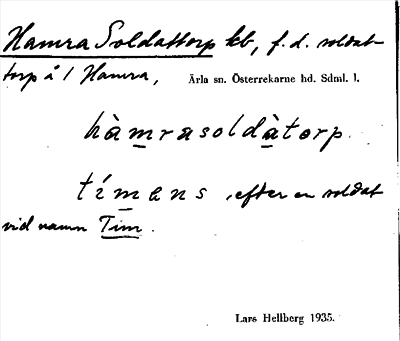 Hamra Soldattorp kb, f.d. soldat-
torp å 1 Hamra, Ärla sn. Österrekarne hd. Sdml. l.
hàmrasoldàtorp.
tímens, efter en soldat
vid namn Tim.
Lars Hellberg 1935.